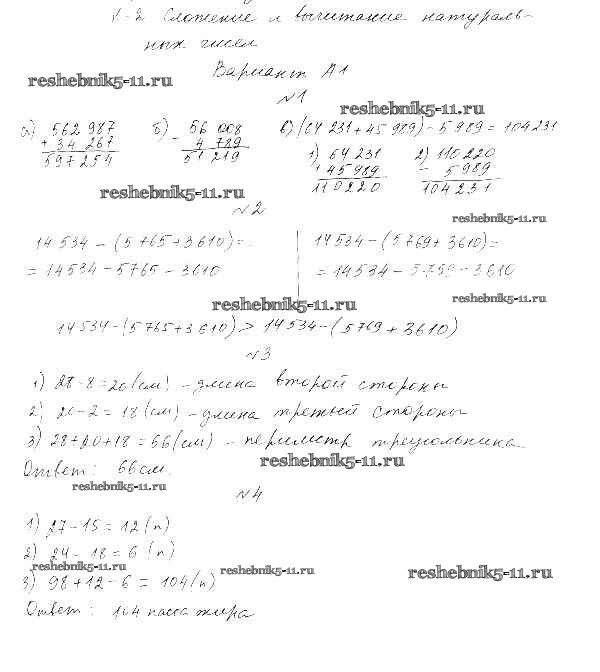 К-2 Сложение и вычитание натураль-
ных чисел
Вариант А1
reshebnik5-11.ru
№1
reshebnik5-11.ru
а) 562 987
+ 34 267
597 254
б) 56 008
- 4 789
51 219
в) (64 231 + 45 989) - 5 989 = 104 231
1) 64 231
+ 45 989
110 220
2) 110 220
- 5 989
104 231
reshebnik5-11.ru
№2
reshebnik5-11.ru
14 534 - (5 765 + 3 610) =
= 14 534 - 5 765 - 3 610
14 534 - (5 769 + 3 610) =
= 14 534 - 5 769 - 3 610
reshebnik5-11.ru
reshebnik5-11.ru
14 534 - (5 765 + 3 610) > 14 534 - (5 769 + 3 610)
№3
1) 28 - 8 = 20 (см) - длина второй стороны
2) 20 - 2 = 18 (см) - длина третьей стороны
3) 28 + 20 + 18 = 66 (см) - периметр треугольника.
reshebnik5-11.ru
Ответ: 66 см.
reshebnik5-11.ru
№4
1) 27 - 15 = 12 (п)
2) 24 - 18 = 6 (п)
reshebnik5-11.ru
reshebnik5-11.ru
reshebnik5-11.ru
3) 98 + 12 - 6 = 104 (п)
Ответ: 104 пассажира